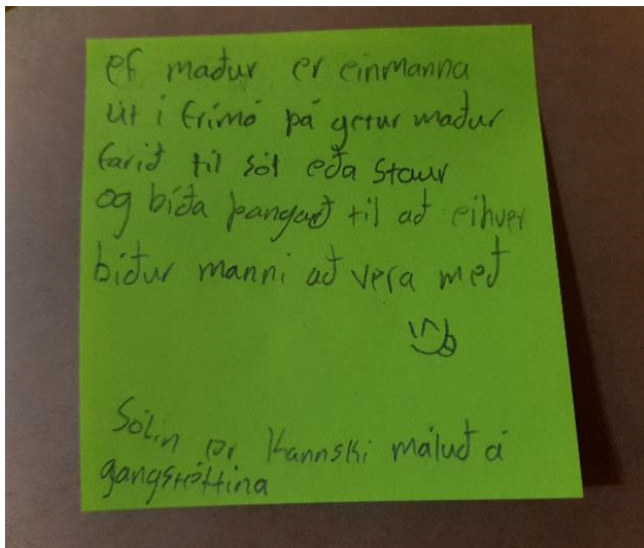 ef maður er einmanna
út í frímó þá getur maður
farið til sól eða staur
og bíða þangað til að eihver
biður manni að vera með
Sólin er kannski máluð á
gangstéttina